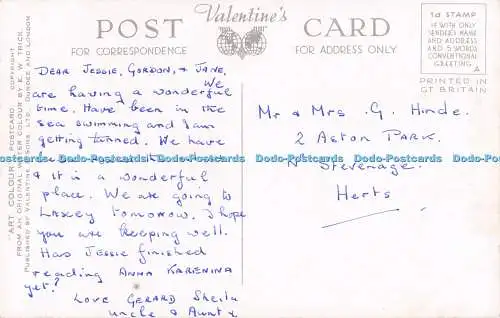 POST
Valentine's
CARD
FOR CORRESPONDENCE
FOR ADDRESS ONLY
1d STAMP
IF WITH ONLY
SENDER'S NAME
AND ADDRESS
AND 5 WORDS
CONVENTIONAL
GREETING.
A
PRINTED IN
GT BRITAIN
DEAR JESSIE, GORDON, & JANE,
We
are having a wonderful
time. Have been in the
sea swimming and I am
getting tanned. We have
& it is a wonderful
place. We are going to
LAXEY tomorrow. I hope
you are keeping well.
Has JESSIE finished
reading ANNA KARENINA
yet?
LOVE GERARD Sheila
uncle & Aunt x
Mr & Mrs. G. Hinde.
2 ASTON PARK.
Stevenage.
Herts
"ART COLOUR" POSTCARD. COPYRIGHT
FROM AN ORIGINAL WATER COLOUR BY E. W. TRICK.
PUBLISHED BY VALENTINE & SONS LTD. DUNDEE AND LONDON
Dodo-Postcards Dodo-Postcards Dodo-Postcards Dodo-Postcards Dodo-Postcards Dodo-Postcards